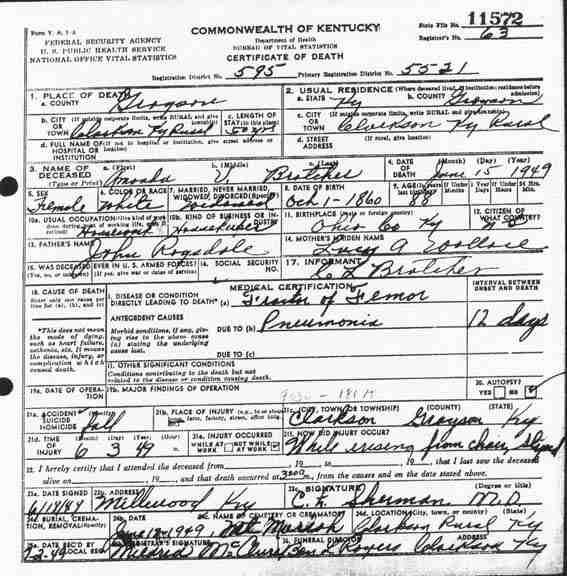 Form V. S. 1-A
COMMONWEALTH OF KENTUCKY
State File No. 11572
FEDERAL SECURITY AGENCY
Department of Health
Registrar's No. 63
U. S. PUBLIC HEALTH SERVICE
BUREAU OF VITAL STATISTICS
NATIONAL OFFICE VITAL STATISTICS
CERTIFICATE OF DEATH
Registration District No. 595 Primary Registration District No. 5521
1. PLACE OF DEATH
a. COUNTY Grayson
2. USUAL RESIDENCE (Where deceased lived. If institution: residence before admission)
a. STATE Ky b. COUNTY Grayson
b. CITY OR TOWN (If outside corporate limits, write RURAL and give Clarkson Ky Rural
c. LENGTH OF STAY (in this place) 50 yrs
c. CITY OR TOWN (If outside corporate limits, write RURAL and give Clarkson Ky Rural
d. FULL NAME OF (If not in hospital or institution, give street address or location) HOSPITAL OR INSTITUTION
d. STREET ADDRESS (If rural, give location)
3. NAME OF DECEASED (Type or Print)
a. (First) Amanda b. (Middle) c. (Last) Bratcher
4. DATE OF DEATH (Month) (Day) (Year) June 15 1949
5. SEX Female
6. COLOR OR RACE White
7. MARRIED, NEVER MARRIED, WIDOWED, DIVORCED (Specify) Widowed
8. DATE OF BIRTH Oct 1-1860
9. AGE 88
10a. USUAL OCCUPATION (Give kind of work Housework
10b. KIND OF BUSINESS OR INDUSTRY
11. BIRTHPLACE (State or foreign country) Ohio Co Ky
12. CITIZEN OF WHAT COUNTRY?
13. FATHER'S NAME John Ragsdale
14. MOTHER'S MAIDEN NAME Lucy A Wallace
15. WAS DECEASED EVER IN U. S. ARMED FORCES?
16. SOCIAL SECURITY NO.
17. INFORMANT Bratcher
18. CAUSE OF DEATH
MEDICAL CERTIFICATION
INTERVAL BETWEEN ONSET AND DEATH
Enter only one cause per line for (a), (b), and (c)
I. DISEASE OR CONDITION DIRECTLY LEADING TO DEATH* (a) of Femor
ANTECEDENT CAUSES
*This does not mean the mode of dying, such as heart failure, asthenia, etc. It means the disease, injury, or complication which caused death.
Morbid conditions, if any, giving rise to the above cause (a) stating the underlying cause last.
DUE TO (b) Pneumonia 12 days
DUE TO (c)
II. OTHER SIGNIFICANT CONDITIONS
Conditions contributing to the death but not related to the disease or condition causing death.
19a. DATE OF OPERATION
19b. MAJOR FINDINGS OF OPERATION
20. AUTOPSY? YES NO
21a. ACCIDENT SUICIDE HOMICIDE (Specify) Fall
21b. PLACE OF INJURY (e.g., in or about home, farm, factory, street, office bldg.
21c. (CITY, TOWN, OR TOWNSHIP) (COUNTY) (STATE)
Clarkson Grayson Ky
21d. TIME OF INJURY (Month) (Day) (Year) (Hour) 6 3 49 m.
21e. INJURY OCCURRED WHILE AT WORK NOT WHILE AT WORK
21f. HOW DID INJURY OCCUR? While arising from chair, slipped
22. I hereby certify that I attended the deceased from , 19 , to , 19 , that I last saw the deceased
alive on , 19 , and that death occurred at m., from the causes and on the date stated above.
23a. DATE SIGNED
23b. ADDRESS Millwood Ky
23c. SIGNATURE C. Sherman M.D.
24a. BURIAL, CREMATION, REMOVAL
24b. DATE June 18-1949
24c. NAME OF CEMETERY OR CREMATORY Mt.
24d. LOCATION (City, town, or county) (State) Clarkson Rural Ky
25a. DATE REC'D BY LOCAL REG.
REGISTRAR'S SIGNATURE Mildred McClure
FUNERAL DIRECTOR Ben L Rogers
ADDRESS Clarkson Ky